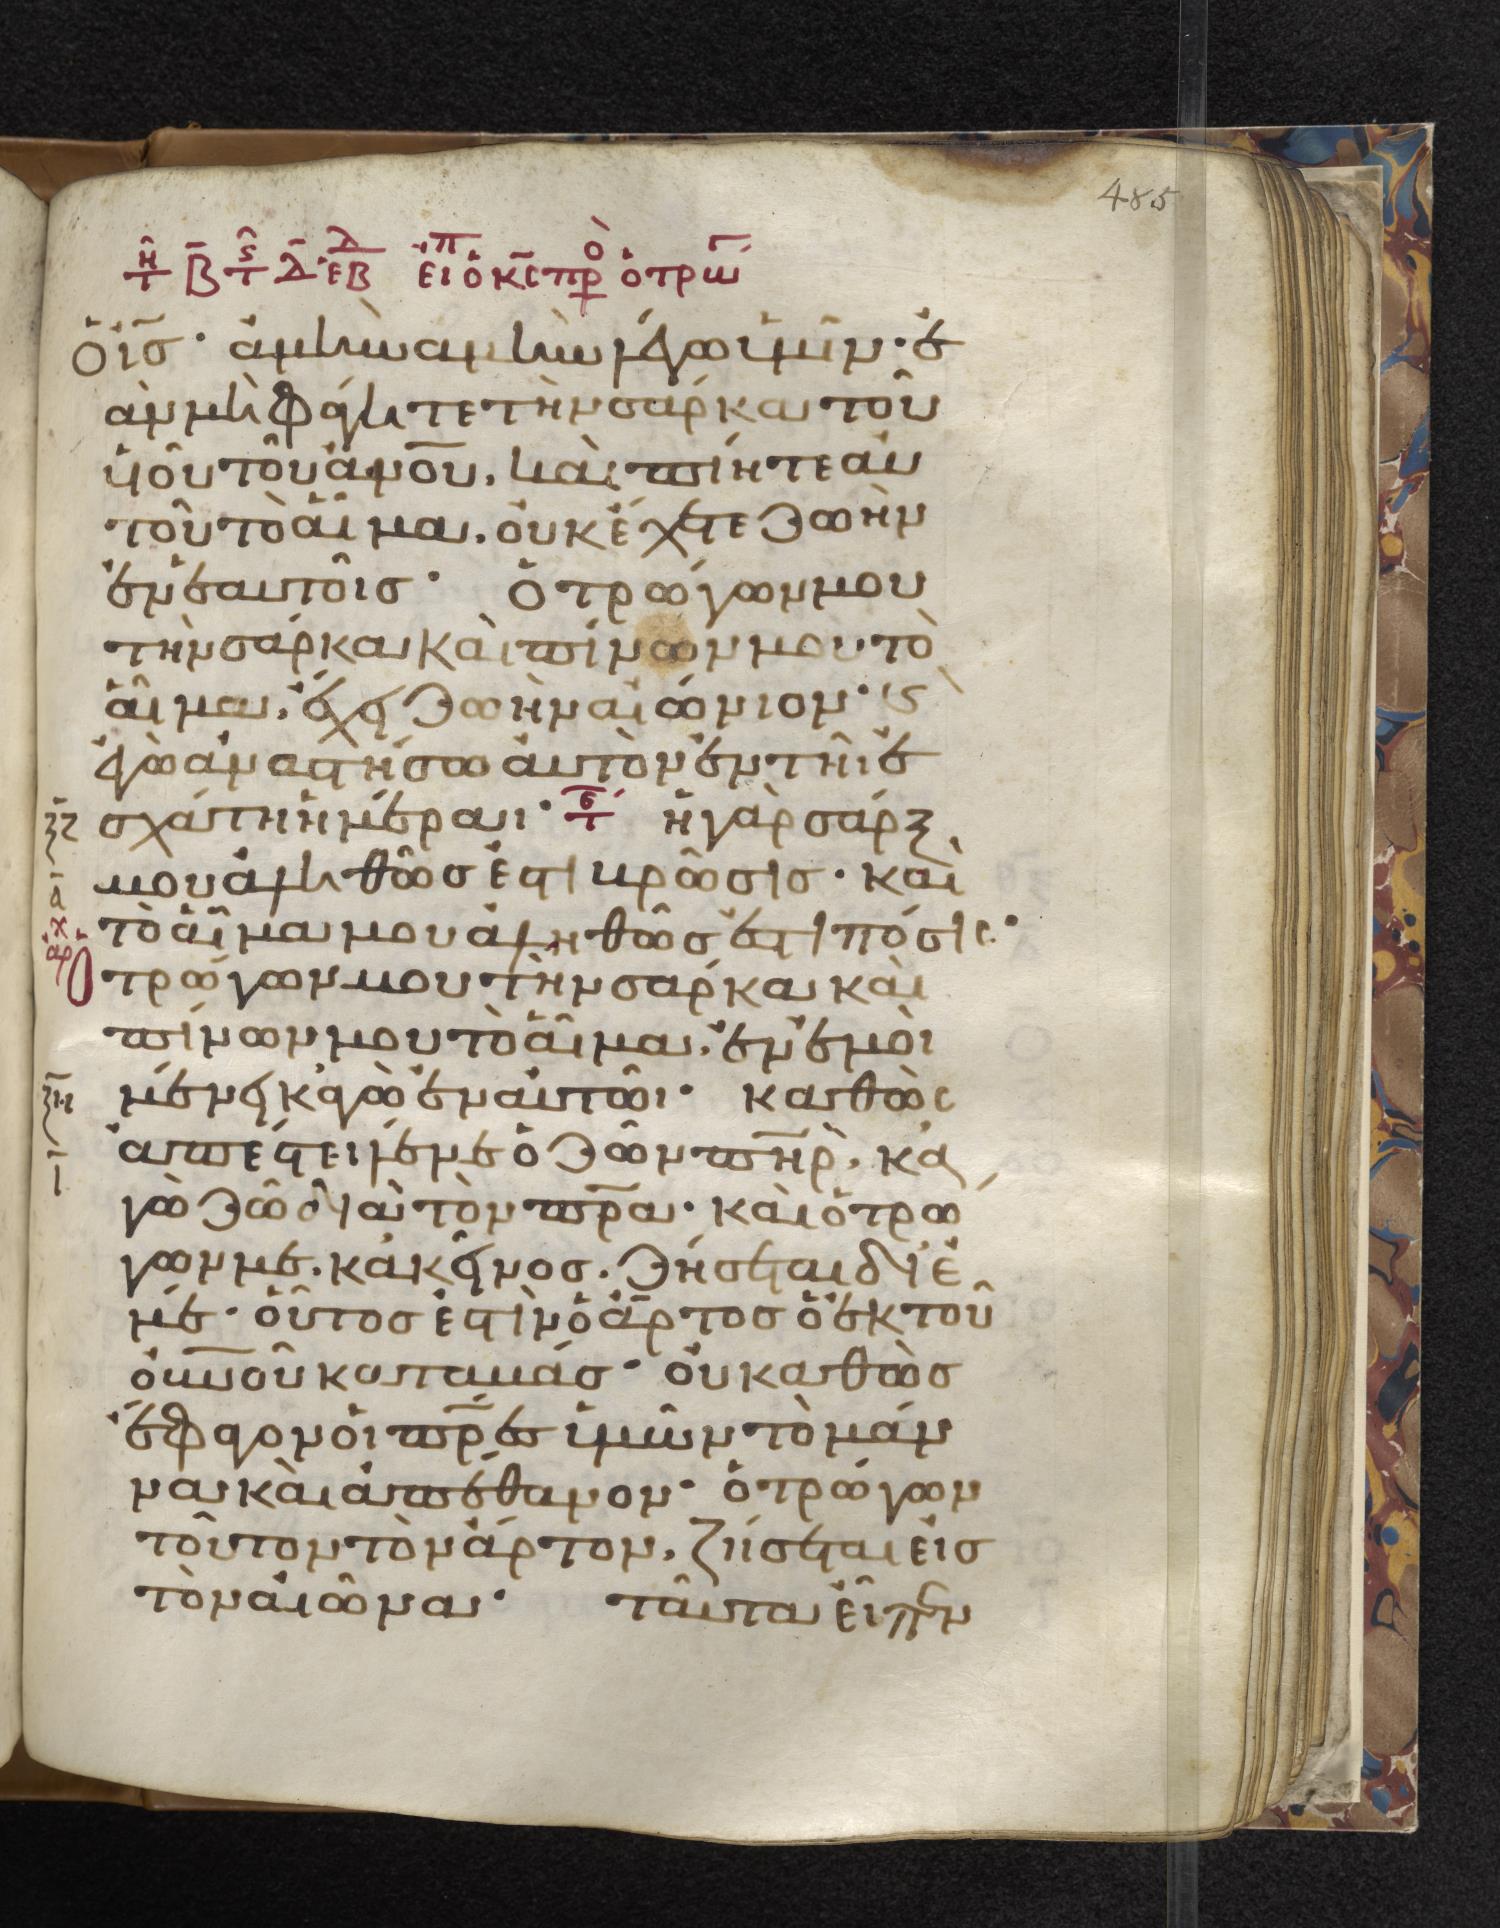 485
ὁ ῑσ̄· ἀμὴν ἀμὴν λέγω ὑμῖν· ἐ
ἀν μὴ φάγητε τὴν σάρκα τοῦ
υἱοῦ τοῦ ἀν̄ου, καὶ πίητε αὐ
τοῦ τὸ αἷμα, οὐκ ἔχετε ζωὴν
ἐν ἑαυτοῖς· ὁ τρώγων μου
τὴν σάρκα καὶ πίνων μου τὸ
αἷμα, ἔχει ζωὴν αἰώνιον· κ
ἐγὼ ἀναστήσω αὐτὸν ἐν τῆι ἐ
σχάτηι ἡμέραι· ἡ γὰρ σάρξ
μου ἀληθῶς ἐστι βρῶσις· καὶ
τὸ αἷμα μου ἀληθῶς ἐστι πόσις·
ὁ τρώγων μου τὴν σάρκα καὶ
πίνων μου τὸ αἷμα, ἐν ἐμοὶ
μένει κἀγὼ ἐν αὐτῶι· καθὼς
ἀπέστειλέν με ὁ ζῶν πη̄ρ, κἀ
γὼ ζῶ διὰ τὸν πρ̄α· καὶ ὁ τρώ
γων με, κἀκεῖνος ζήσεται δι' ἐ
μέ· οὗτός ἐστὶν ὁ ἄρτος ὁ ἐκ τοῦ
οὐν̄οῦ καταβάς· οὐ καθὼς
ἔφαγον οἱ πρ̄ες ὑμῶν τὸ μάν
να καὶ ἀπέθανον· ὁ τρώγων
τοῦτον τὸν ἄρτον, ζήσεται εἰς
τὸν αἰῶνα· ταῦτα εἶπεν